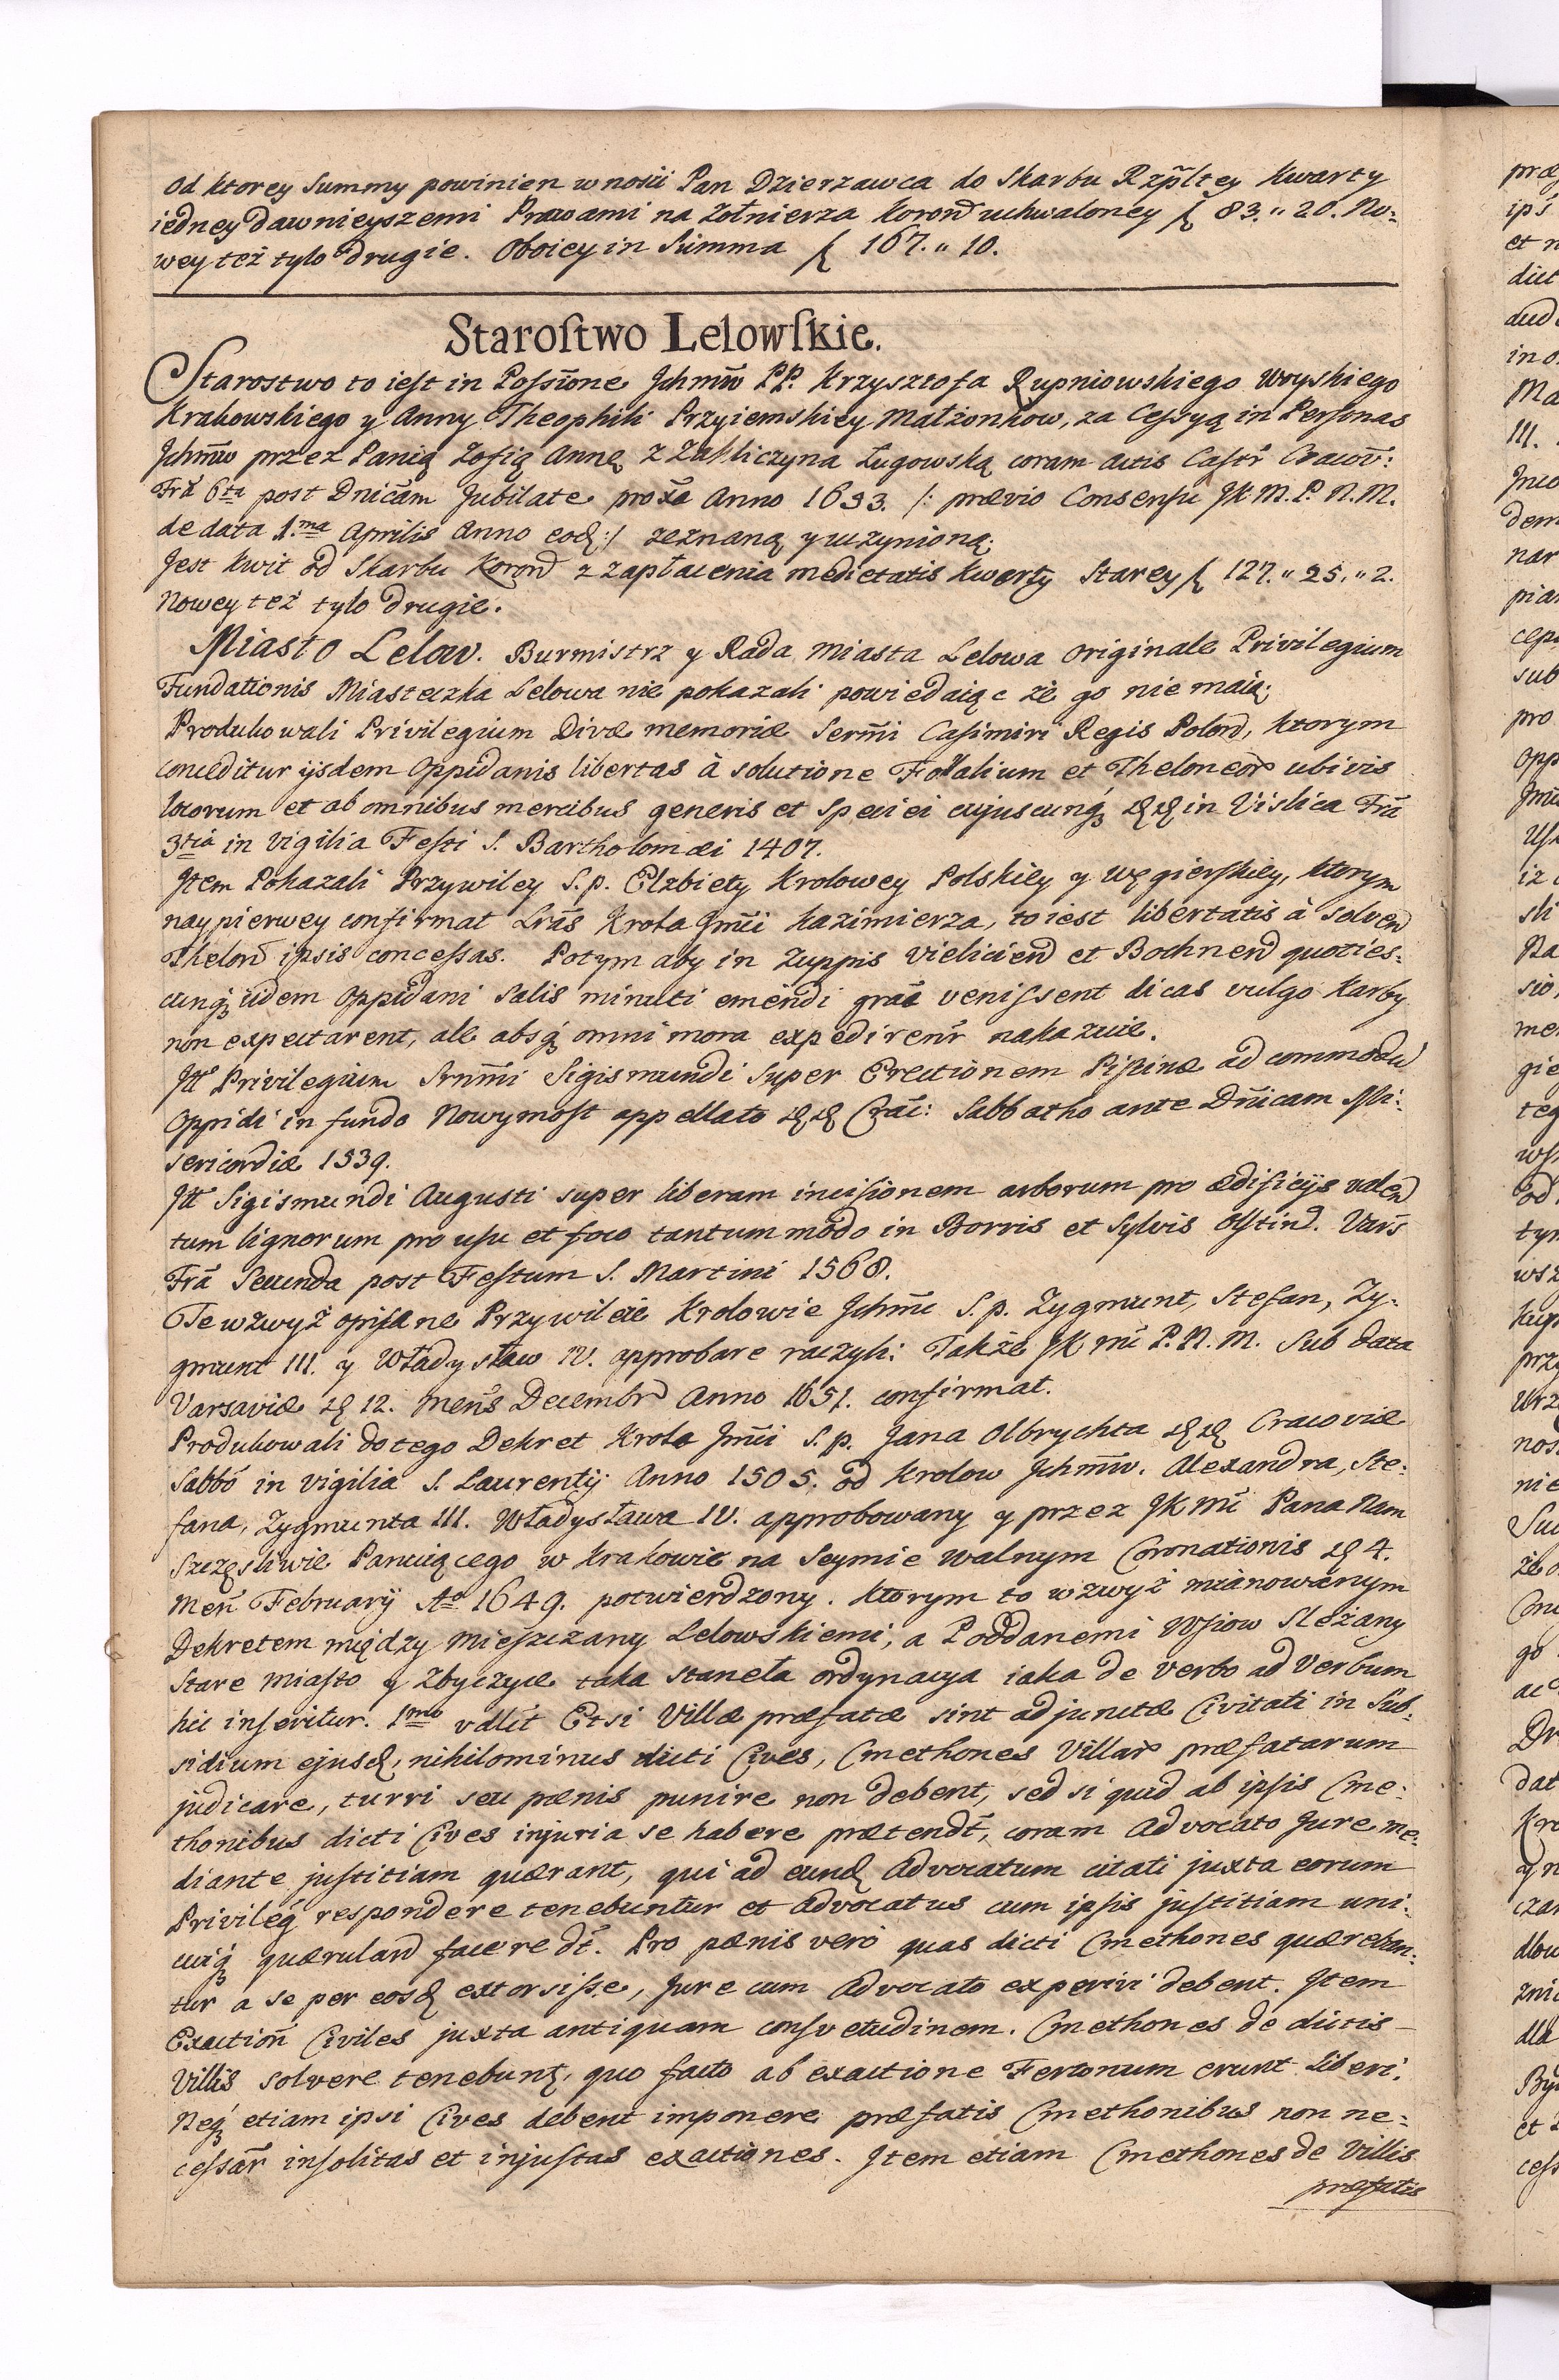 od ktorey Summy powinien wnosić Pan Dzierzawca do Skarbu Rzp̃ltey Kwarty
iedney dawnieyszemi Prawami na Zołnierza Koron̄ uchwaloney ƒ 83. " 20. No-
wey też tylo drugie. Oboiey in Summa ƒ 167. " 10.
Staroſtwo Lelowſkie.
Starostwo to ieſt in Poſsione Jchmw̃ PP. Krzysztofa Rupniowskiego Woyskiego
Krakowskiego y Anny Theophili Przyiemskiey Małżonkow, za Ceſsyą in Perſonas
Jchmw̃ przez Panią Zofią Annę z Zakliczyna Ługowską coram Actis Caſtr̃ Cracov̄:
Frã 6tã post Dnicãm Jubilate proxã Anno 1633. /: prævio Consenſu JK. M. P. N. M.
de data 1.ma Aprilis Anno eod:/ zeznaną y uczynioną.
Jest kwit od Skarbu Koron̄ z zapłacenia medietatis Kwarty Starey ƒ 127. " 25. " 2.
Nowey też tylo drugie.
Miasto Lelow. Burmistrz y Rada Miasta Lelowa Originale Privilegium
Fundationis Miasteczka Lelowa nie pokazali powiedaiąc że go nie maią;
Produkowali Privilegium Divæ memoriæ Serm̃i Caſimiri Regis Polon̄, ktorym
conceditur ijsdem Oppidanis libertas à solutione Foralium et Theloneor̃ ubivis
locorum et ab omnibus mercibus generis et Speciei cujuscunq́ꝫ dd in Viſlica Frã
3tiã in vigilia Feſti S. Bartholomæi 1407.
Jtem Pokazali Przywiley S. p. Elzbiety Krolowey Polskiey y Węgierſkiey, ktorym
naypierwey confirmat Lrãs Krola Jmc̃i Kazimierza, to iest libertatis à Solven̄
Thelon̄ ipsis conceſsas. Potym aby in Zuppis Vielicien̄ et Bochnen̄ quoties-
cunq́ꝫ iidem Oppidani Salis minuti emendi grãa veniſsent dicas vulgo Karby
non expectarent, ale absq́ꝫ omni mora expedirentr̃ nakazuie.
Jtt̃ Privilegium Srnm̃i Sigismundi Super Erectionem Piſcinæ ad commodũ
Oppidi in fundo Nowymoſt appellato dd Crãc: Sabbatho ante Dñicam Mi-
sericordiæ 1539.
Jtt̃ Sigismundi Augusti super liberam incisionem arborum pro ædificijs valen̄
tum lignorum pro uſu et foco tantummodo in Borris et Sylvis Oſtin̄. Vars̄
Frã Secunda post Feſtum S. Martini 1568.
Te wzwyż opiſane Przywileie Krolowie Jchmc̃ S. p. Zygmunt, Stefan, Zy-
gmunt III. y Władysław IV. approbare raczyli: Także JK Mc̃ P. N. M. Sub data
Varsaviæ d 12. Mens̄ Decembr̃ Anno 1651. confirmat.
Produkowali do tego Dekret Krola Jmc̃i S. p. Jana Olbrychta dd Cracoviæ
Sabbõ in vigilia S. Laurentij Anno 1505. od Krolow Jchmw̃. Alexandra, Ste-
fana, Zygmunta III. Władysława IV. approbowany y przez JK Mc̃ Pana Nam
Szczęsliwie Panuiącego w Krakowie na Seymie Walnym Coronationis d 4.
Men̄ Februarij Aõ 1649. potwierdzony. Ktorym to wzwyż mianowanym
Dekretem między Mieſzczany Lelowskiemi, a Poddanemi Wſiow Sleżany
Stare Miaſto y Zbyczyce taka staneła ordynacya iaka de verbo ad Verbum
hic inſeritur. 1mo vdlit Etsi Villæ præfatæ sint adjunctæ Civitati in Sub-
sidium ejusd, nihilominus dicti Cives, Cmethones Villar̃ præfatarum
judicare, turri seu pænis punire non debent, sed si quid ab ipſis Cme-
thonibus dicti Cives injuria se habere prætendt̃, coram Advocato Jure me-
diante juſtitiam quærant, qui ad eund Advocatum citati juxta eorum
Privileg̃ respondere tenebuntur et Advocatus cum ipſis juſtitiam uni-
cuiq́ꝫ quærulan̄ facere dt̃. Pro pænis verò quas dicti Cmethones quæreban-
tur a se per eosd extorsiſse, Jure cum Advocato experiri debent. Jtem
Exaction̄ Civiles juxta antiquam conſvetudinem. Cmethones de dictis
Villis solvere tenebunt, quo facto ab exactione Fertonum erunt Liberi.
Neq́ꝫ etiam ipsi Cives debent imponere præfatis Cmethonibus non ne-
ceſsar̃ inſolitas et injuſtas exactiones. Jtem etiam Cmethones de Villis
præfatis